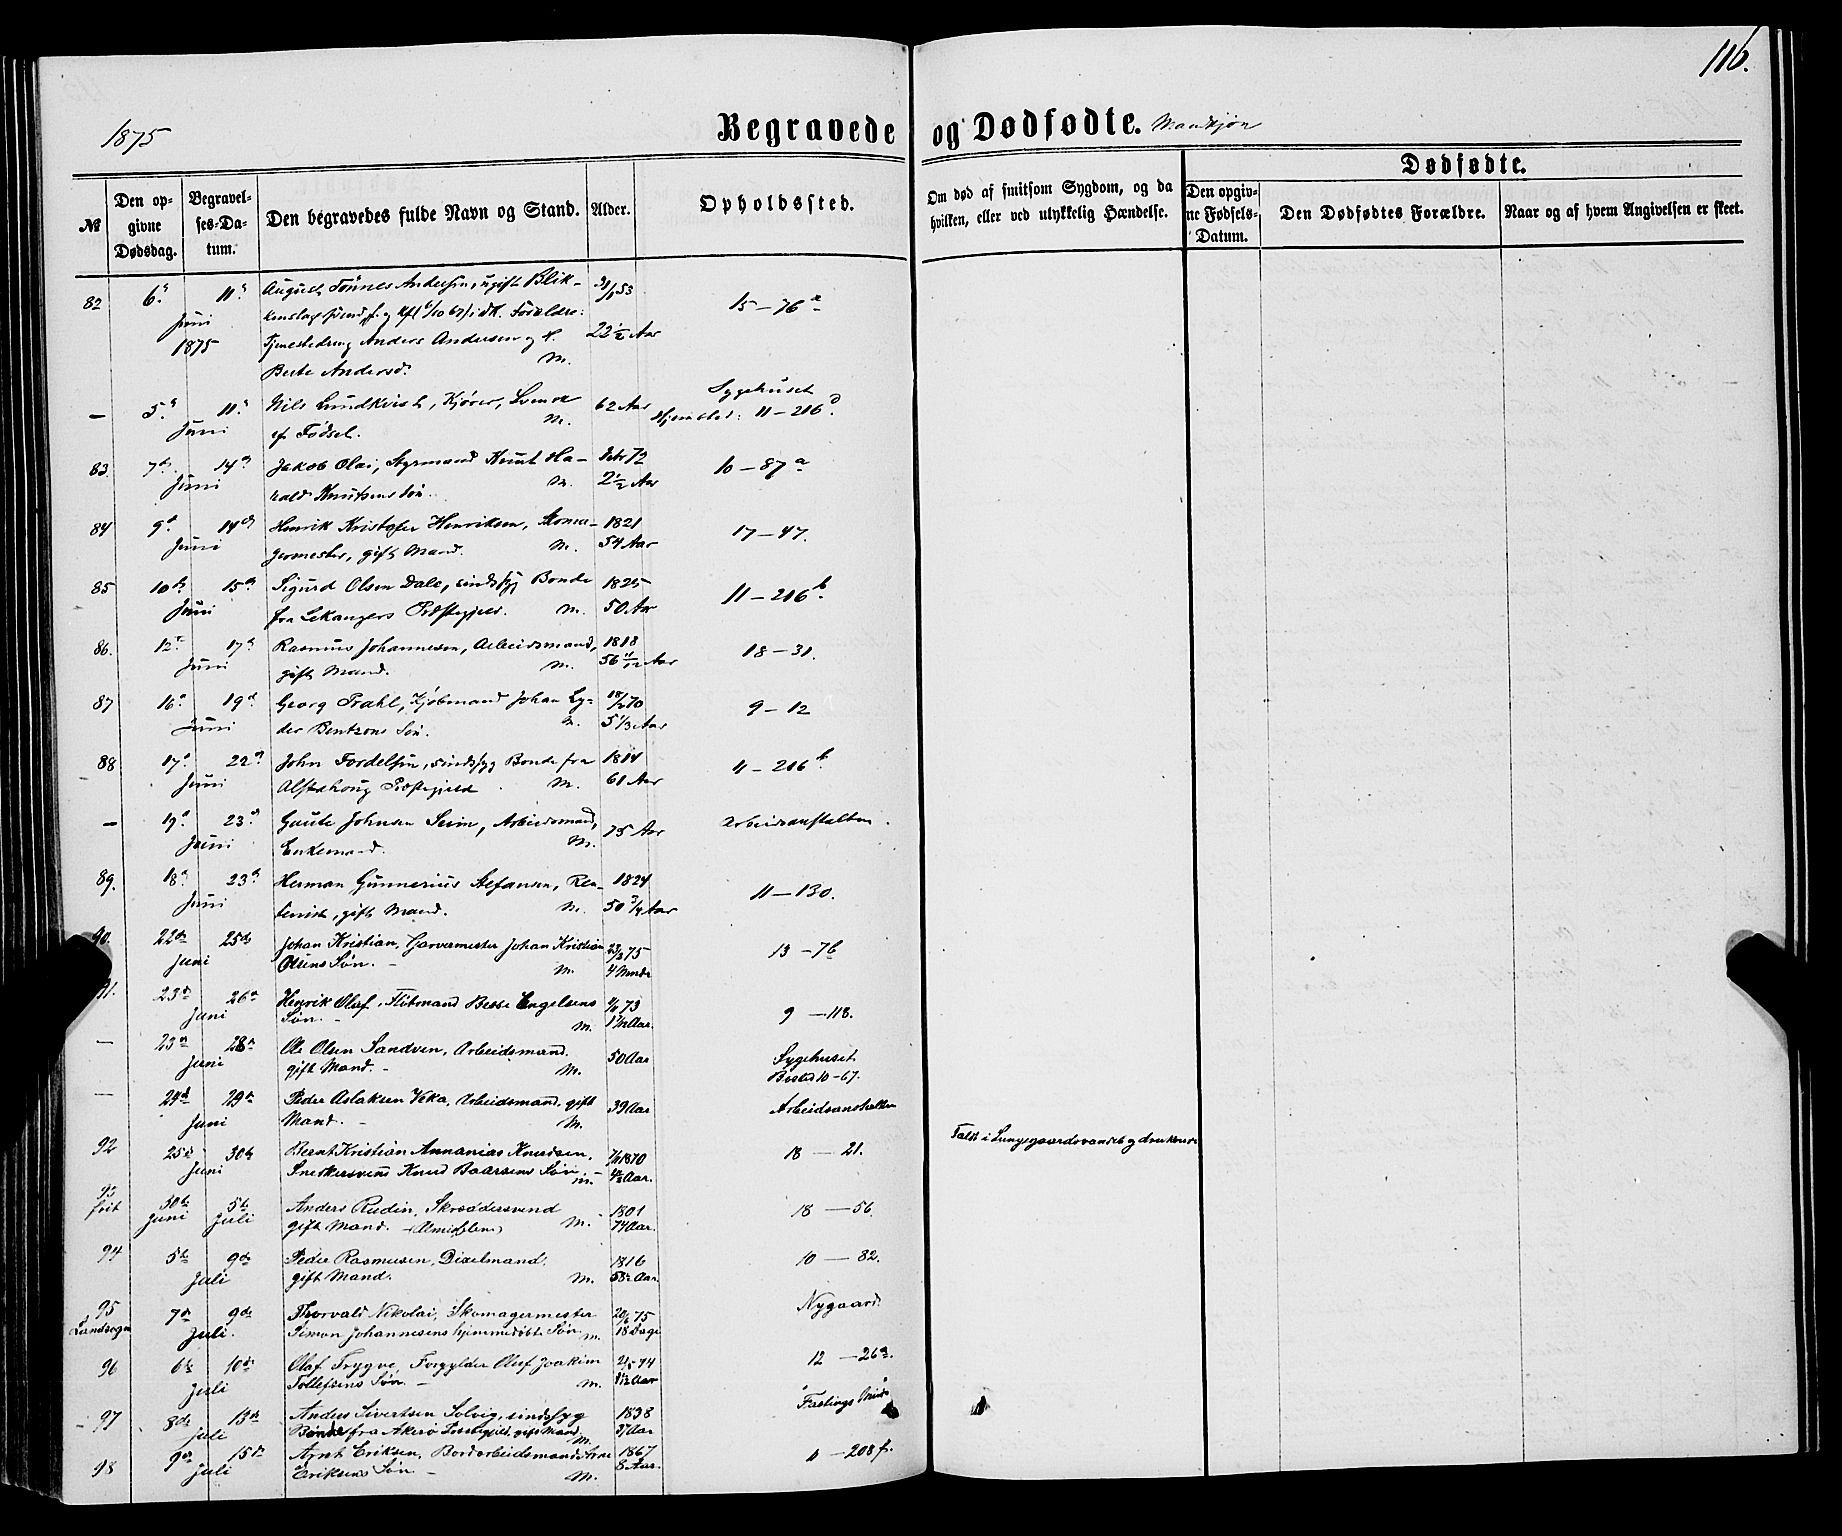 116.
1875
Begravede og Dødfødte. Mandkjøn
№
Den opgivne Dødsdag.
Begravelses-Datum.
Den begravedes fulde Navn og Stand.
Alder.
Opholdssted.
Om død af smitsom Sygdom, og da hvilken, eller ved ulykkelig Hændelse.
Dødfødte.
Den opgivne Fødsels-Datum.
Den Dødfødtes Forældre.
Naar og af hvem Angivelsen er skeet.
82 6. 11. August Tönnes Andersen, ugift Blik-
Juni 1875 Forældre: 15-76a
Tjenestedreng Anders Andersen og 22½ Aar
Berte Andersd. M.
— 5. 11. Nils Lundkvist, Kjører, Svensk 62 Aar Sygehuset
Juni af Fødsel. M. Hjemsted: 11-216d.
83. 7de 14de Jakob Olai, Styrmand Knut Ha- 72 10-87a
Juni rald Knutsens Søn. M. 2½ Aar
84 9. 14de Henrik Kristofer Henriksen, Skoma- 1821 17-47.
Juni germester, gift Mand. M. 54 Aar
85 10de 15de Sigurd Olsen Dale, sindssyg Bonde 1825 11-216b.
Juni fra Lekangers Præstegjeld. M. 50 Aar
86. 12. 17. Rasmus Johannesen, Arbeidsmand, 1818 18-31.
Juni gift Mand. M. 56 11/12 Aar
87 16. 19. Georg Prahl, Kjøbmand Johan Ly- 18/2 70 9-12
Juni der Bentzons Søn. M. 5 1/3 Aar
88 17. 22. John Tordelsen, sindssyg Bonde fra 1814 11-216b.
Juni Alstahoug Præstegjeld M. 61 Aar
— 19. 23. Gaute Johnsen Seim, Arbeidsmand, 75 Aar Arbeidsanstalten.
Juni Enkemand. M.
89. 18. 23. Herman Gunnerius Stefansen, Ren- 1824 11-130.
Juni tenist, gift Mand. M. 50 3/4 Aar
90. 22de 25de Johan Kristian, Garvermester Johan Kristian 22/2 75 13-7b
Juni Olsens Søn. — M. 4 Mndr
91. 23de 26de Henrik Oluf, Flötmand Besse Engelsens 73 9-118.
Juni Søn. — M. Aar.
— 23de 28de Ole Olsen Sandven, Arbeidsmand. 50 Aar Sygehuset
Juni gift Mand. — M. Bosted 10-67.
— 24de 29de Peder Aslaksen Veka, Arbeidsmand. gift 39 Aar Arbeidsanstalten
Juni Mand. — M.
92 25de 30te Bernt Kristian Annanias Knudsen, 1870 18-21. Faldt i Lungegaardsvandet og druknede
Juni Snedkersvend Knud Baarsens Søn. — M. Aar.
93 frit 30te 5te Anders Rudin, Skræddersvend 1801 18-56.
Juni Juli gift Mand. — (Almislem) M. 74 Aar.
94 5te 9de Peder Rasmussen, Dixelmand. 1816 10-82.
Juli gift Mand. M. Aar.
95 7de 9de Thorvald Nikolai, Skomagermester 20/6 75 Nygaard.
Landsogn Juli. Simon Johannesens hjemmedøbte Søn. M. 18 Dage
96 6te 10de Olaf Trygve, Forgylder Oluf Joakim 74 12-26a.
Juli Tollefsens Søn. — M. Aar
97 8de 13de Anders Sivertsen Solvig, sindssyg 1838 Fastings Minde
Juli Bonde fra Akerø Præstegjeld, gift Mand. M. 37 Aar
98 9de 15de Arnt Eriksen, Bordarbeidsmand Arne 1867 11-208f.
Juli Eriksens Søn — M. 8 Aar.